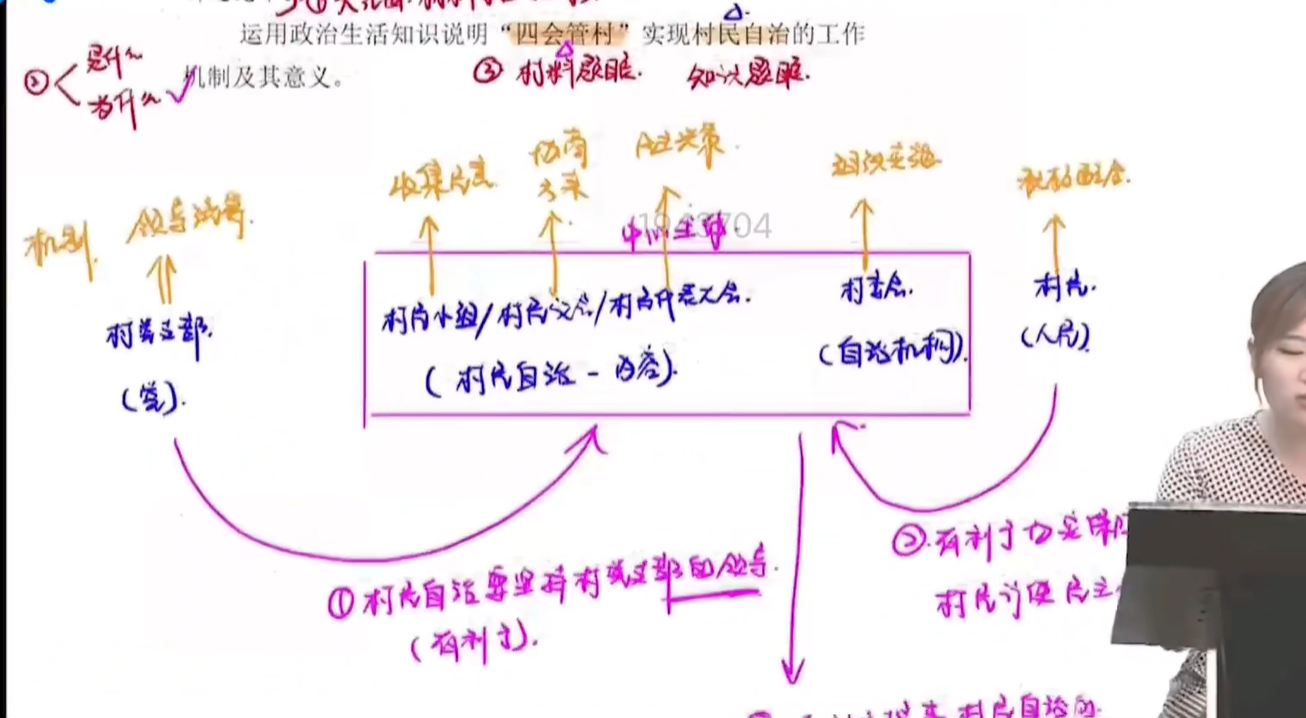 运用政治生活知识说明“四会管村”实现村民自治的工作
机制及其意义。
② 是什么
为什么
③ 材料题眼. 知识题眼.
收集民意 协商方案 民主决策 组织实施 积极配合.
机制. 领导
1943704
村党支部.
(党).
村民小组/村民议会/村民代表大会.
(村民自治-内容).
村委会.
(自治机构).
村民.
(人民).
①村民自治要坚持村党支部的领导.
(有利于).
②.有利于切实保障
村民行使民主
村民自治的